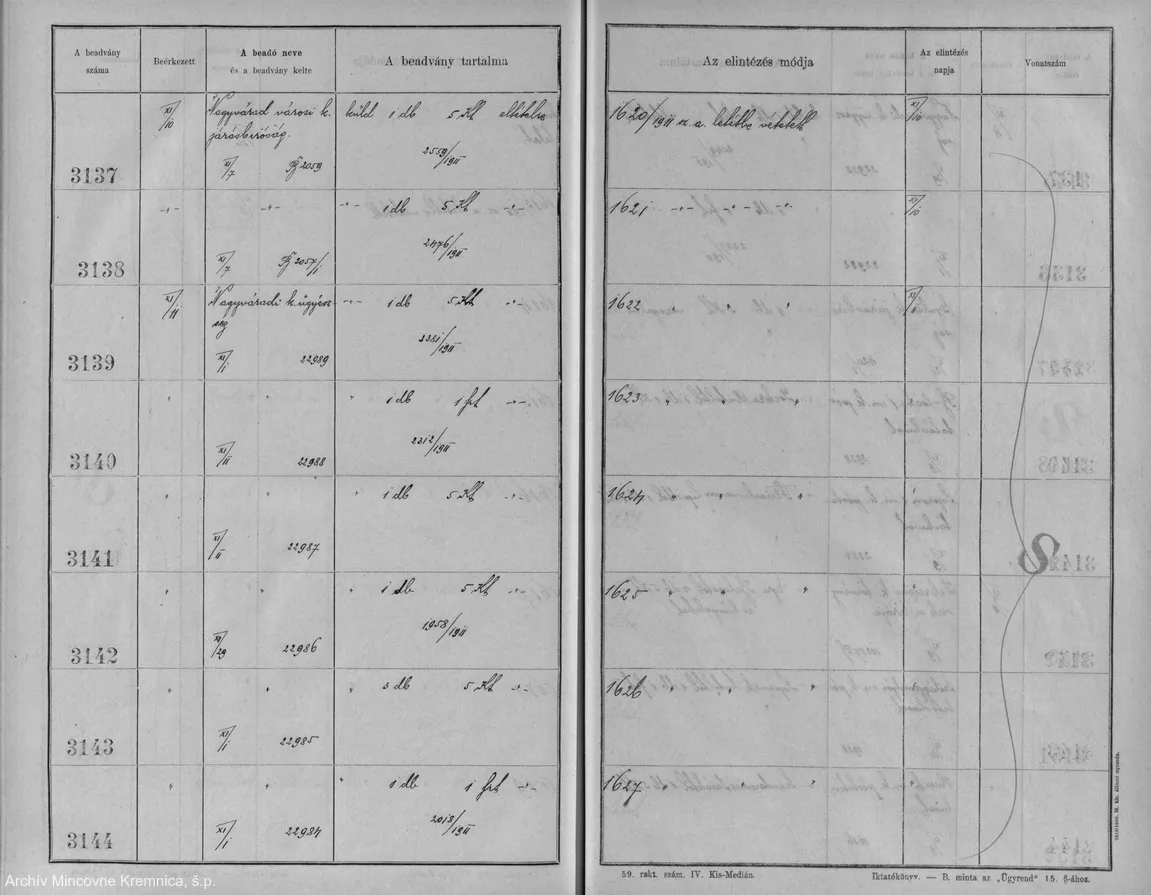 A beadvány száma
Beérkezett
A beadó neve és a beadvány kelte
A beadvány tartalma
Az elintézés módja
Az elintézés napja
Vonatszám
XI/10
Nagyvárad városi k. küld 1 db 5 Kt
járásbíróság.
1620/1911 sz. a. letétbe vétetett
XI/10
2559/1911
3137
XI/7 2059
-"- -"- -"- 1 db 5 Kt -"-
1621 -"- -"- -"- -"-
XI/10
2476/1911
3138
XI/7 2057/1
XI/11
Nagyváradi k. ügyész-
ség
-"- 1 db 5 Kt -"-
1622 " " "
2281/1911
3139
XI/1 22989
" 1 db 1 frt -"-
1623 " " "
2312/1911
3140
XI/11 22988
" " " 1 db 5 Kt -"-
1624 " " "
3141
XI/11 22987
" " " 1 db 5 Kt -"-
1625 " " "
1958/1911
3142
22986
" " " 3 db 5 Kt -"-
1626 " " "
3143
XI/1 22985
" " " 1 db 1 frt -"-
1627 " " "
2018/1911
3144
XI/1 22984
59. rakt. szám. IV. Kis-Medián.
Iktatókönyv. — B. minta az „Ügyrend" 15. §-ához.
Archív Mincovne Kremnica, š.p.